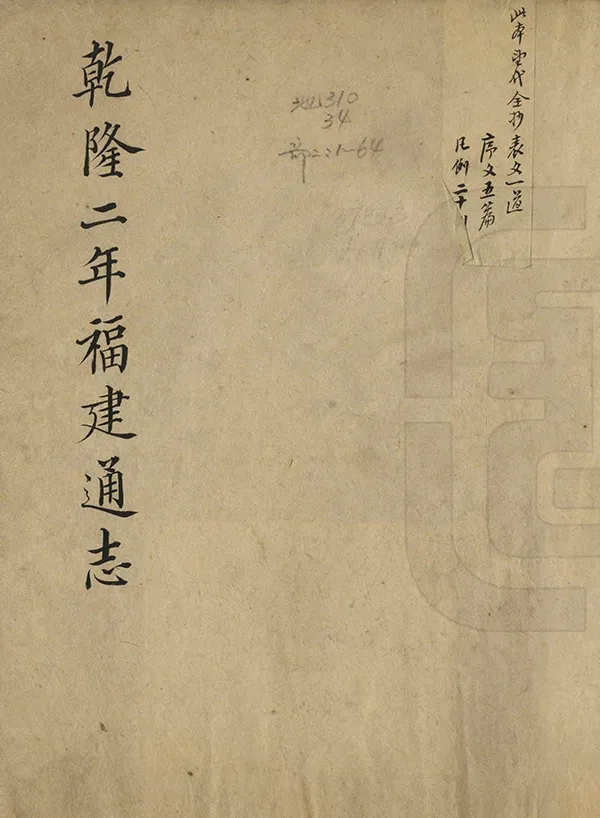 此本望代全抄表文一道
序文五篇
凡例二十
地310
34
部二:1-64
乾隆二年福建通志